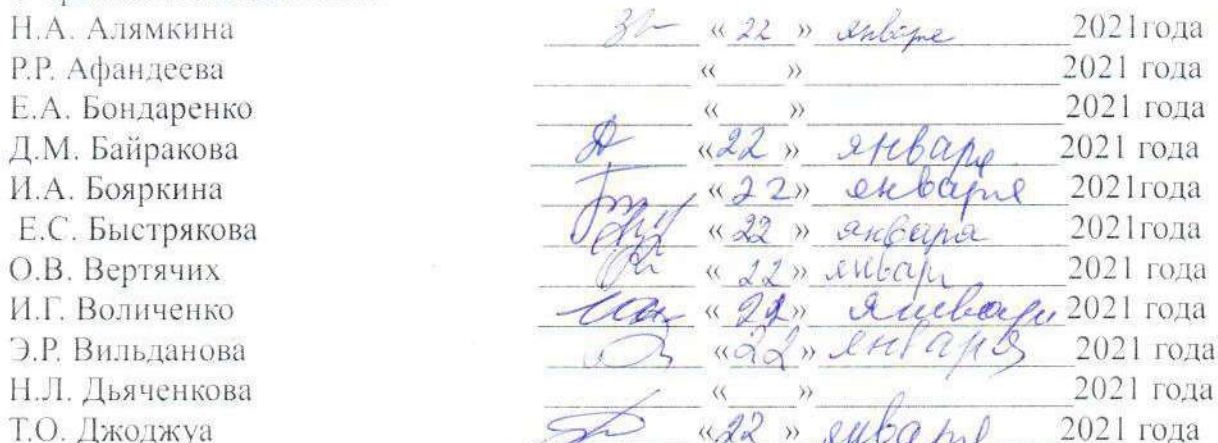 Н.А. Алямкина «22» января 2021года
Р.Р. Афандеева «  » 2021 года
Е.А. Бондаренко «  » 2021 года
Д.М. Байракова «22» января 2021 года
И.А. Бояркина «22» января 2021года
Е.С. Быстрякова «22» января 2021года
О.В. Вертячих «22» январь 2021 года
И.Г. Воличенко «22» января 2021 года
Э.Р. Вильданова «22» января 2021 года
Н.Л. Дьяченкова «  » 2021 года
Т.О. Джоджуа «22» января 2021 года